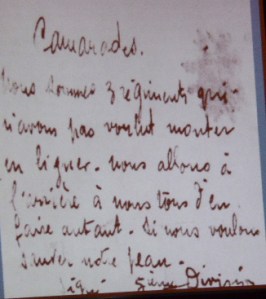 Camarades.
Nous sommes 3 régiments qui
n'avons pas voulut monter
en ligner. nous allons à
l'arrière à nous tous d'en
faire autant. si nous voulons
sauver notre peau.
signé 5ième Division